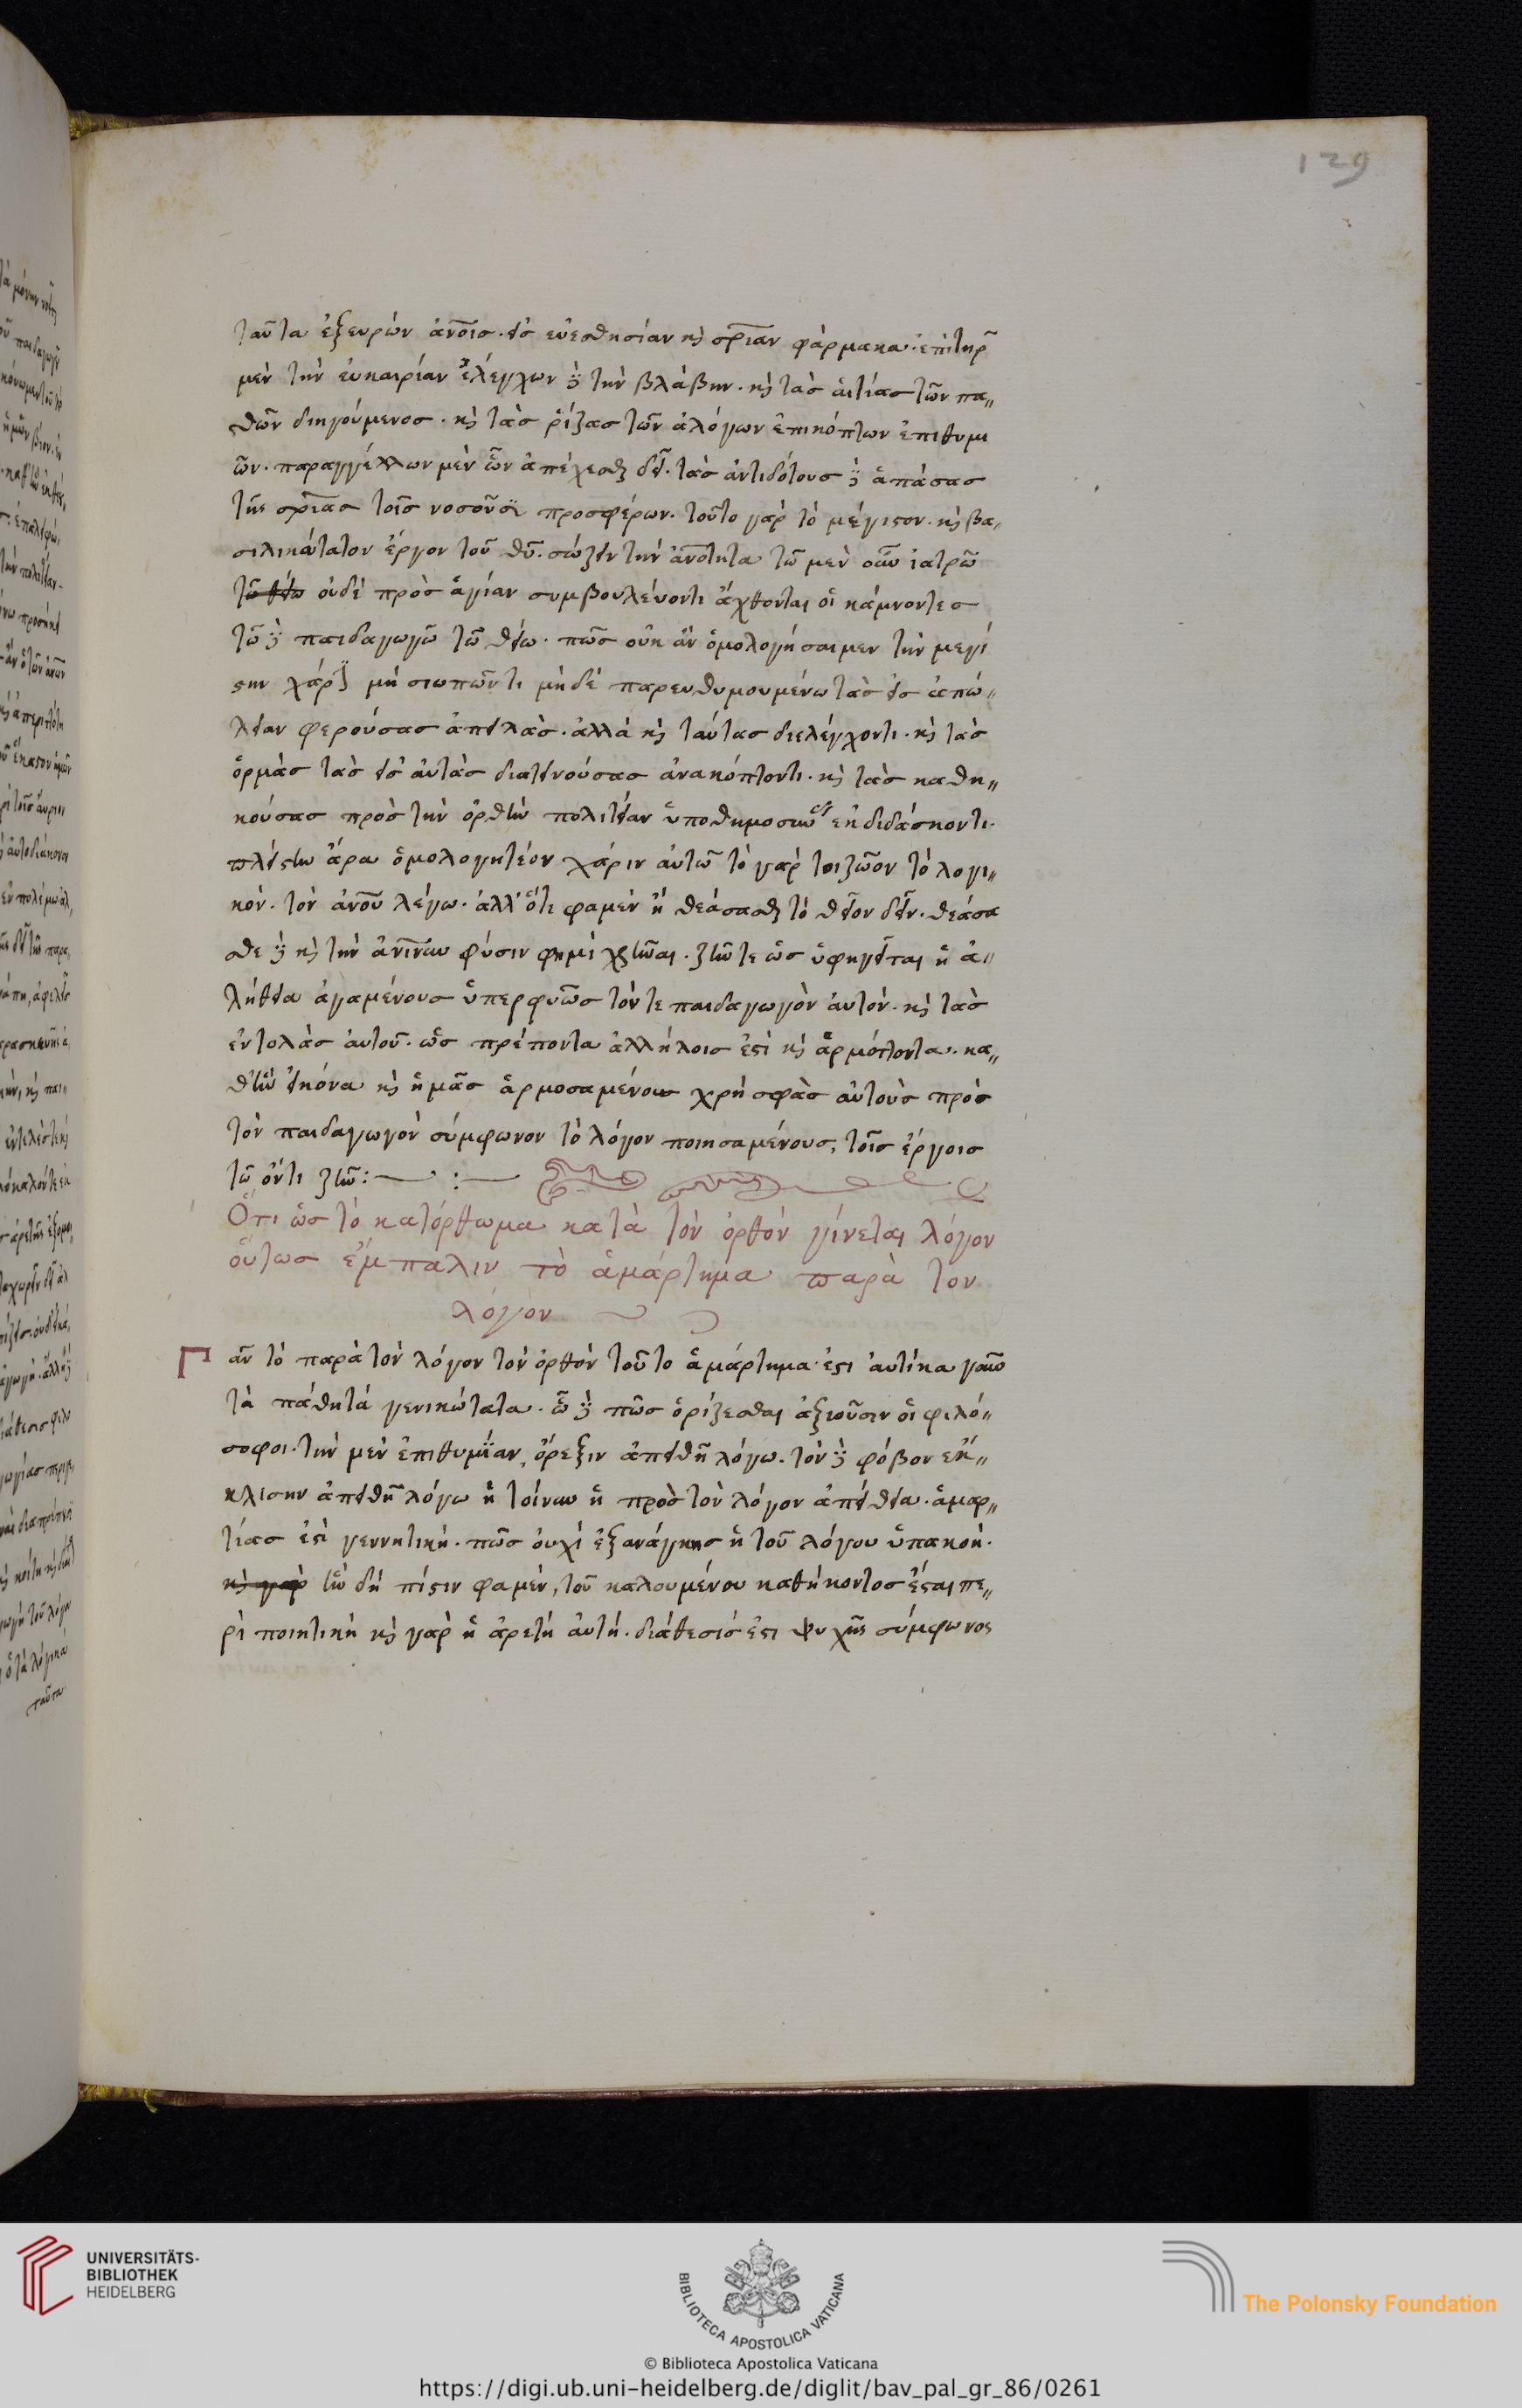 129
ταῦτα ἐξευρών ἀνοῖσ· εἰσ εὐεσθησίαν κ̀ σρίαν φάρμακα· ἐπιτηρ
μὲν τὴν εὐκαιρίαν ἐλέγχων δὲ τὴν βλάβην· κ̀ τὰσ αἰτίασ τῶν πα
θῶν διηγούμενοσ· κ̀ τὰσ ῥίζασ τῶν ἀλόγων ἐπικόπτων ἐπιθυμι
ῶν· παραγγέλλων μὲν ὧν ἀπέχεσθ δεῖ· τὰσ ἀντιδότουσ δὲ ἁπάσασ
τῆς σρίασ τοῖσ νοσοῦσι προσφέρων· τοῦτο γὰρ τὸ μέγιστον· κ̀ βα
σιλικώτατον ἔργον τοῦ θυ· σώζειν τὴν ἀνότητα τῶ μὲν οὖν ἰατρῶ
τῶ θείω οὐδὲ πρὸσ ὑγίαν συμβουλεύοντι ἄχθονται οἱ κάμνοντεσ
τῶ δὲ παιδαγωγῶ τῶ θείω· πῶσ οὐκ ἂν ὁμολογήσαιμεν τὴν μεγί
στην χάρ μὴ σιωπῶντι μηδὲ παρενθυμουμένω τὰσ εἰσ ἀπώ
λειαν φερούσασ ἀπειλάσ· ἀλλὰ κ̀ ταύτασ διελέγχοντι· κ̀ τὰσ
ὁρμάσ τὰσ εἰσ αὐτὰσ διατεινούσασ ἀνακόπτοντι· κ̀ τὰσ καθη
κούσασ πρὸσ τὴν ὀρθὴν πολιτείαν ὑποθημοσύνασ ἐκδιδάσκοντι·
πλείστην ἄρα ὁμολογητέον χάριν αὐτῶ τὸ γὰρ τοι ζῶον τὸ λογι
κόν· τὸν ἀνον λέγω· ἀλλ' ὅτι φαμὲν ἢ θεάσασθ τὸ θεῖον δεῖν· θεάσα
σθε δὲ κ̀ τὴν ἀνίνην φύσιν φημὶ χρῆναι· ζῆν τε ὡσ ὑφηγεῖται ἡ ἀ
λήθεια ἀγαμένουσ ὑπερφυῶσ τόν τε παιδαγωγὸν αὐτόν· κ̀ τὰσ
ἐντολὰσ αὐτοῦ· ὡσ πρέποντα ἀλλήλοισ ἐστὶ κ̀ ἁρμόττοντα· κα
θ' ἣν εἰκόνα κ̀ ἡμᾶσ ἁρμοσαμένουσ χρὴ σφᾶσ αὐτοὺσ πρόσ
τὸν παιδαγωγὸν σύμφωνον τὸ λόγον ποιησαμένουσ, τοῖσ ἔργοισ
τῶ ὄντι ζῆν:— :—
Ὅτι ὡσ τὸ κατόρθωμα κατὰ τὸν ὀρθὸν γίνεται λόγον
οὕτωσ ἔμπαλιν τὸ ἁμάρτημα παρὰ τον
λόγον
Πᾶν τὸ παρὰ τὸν λόγον τὸν ὀρθὸν τοῦτο ἁμάρτημα ἐστι αὐτίκα γοῦν
τὰ πάθη τὰ γενικώτατα· ὧδέ πωσ ὁρίζεσθαι ἀξιοῦσιν οἱ φιλό
σοφοι· τὴν μὲν ἐπιθυμίαν, ὄρεξιν ἀπειθῆ λόγω· τὸν δὲ φόβον ἔκ
κλισην ἀπειθῆ λόγω ἢ τοίνυν ἡ πρὸσ τὸν λόγον ἀπείθεια· ἁμαρ
τίασ ἐστὶ γεννητική· πῶσ οὐχὶ ἐξανάγκησ ἡ τοῦ λόγου ὑπακοή·
κ̀ γὰρ ἣν δὴ πίστιν φαμέν, τοῦ καλουμένου καθήκοντοσ ἔσται πε
ρὶ ποιητική κ̀ γὰρ ἡ ἀρετὴ αὐτή· διάθεσίσ ἐστι ψυχῆς σύμφωνος
UNIVERSITÄTS-
BIBLIOTHEK
HEIDELBERG
BIBLIOTECA APOSTOLICA VATICANA
The Polonsky Foundation
© Biblioteca Apostolica Vaticana
https://digi.ub.uni-heidelberg.de/diglit/bav_pal_gr_86/0261